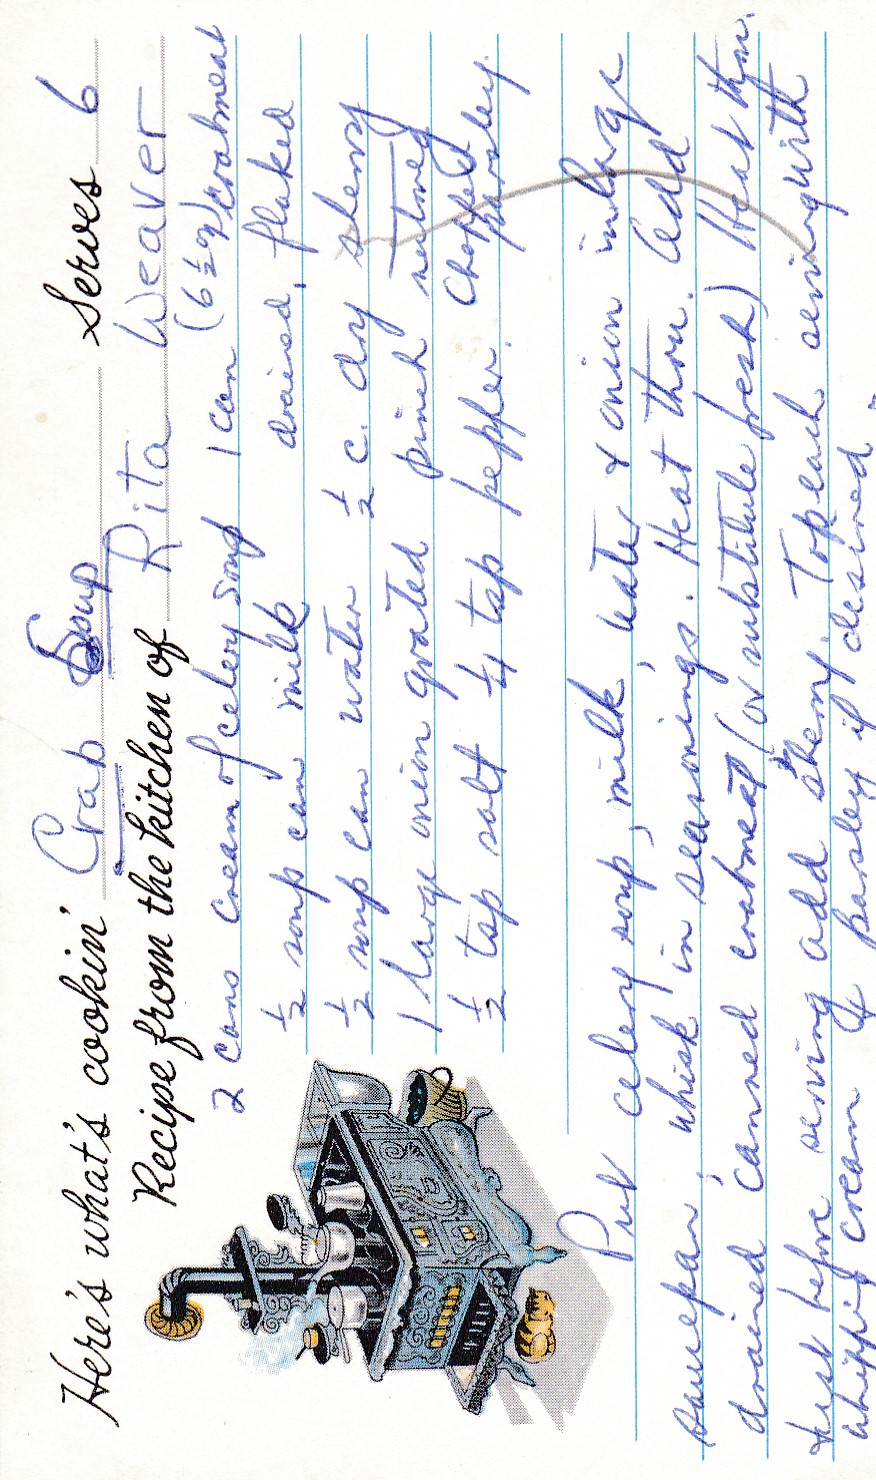 Here's what's cookin' Crab Soup Serves 6
Recipe from the kitchen of Rita Weaver
2 cans cream of celery soup 1 can (6 ½ oz) crabmeat
½ soup can milk drained, flaked
½ soup can water ½ c. dry sherry
1 large onion grated pinch nutmeg
½ tsp salt ¼ tsp pepper. Chopped parsley.
Put celery soup, milk, water & onion in large
saucepan, whisk in seasonings. Heat thru. Add
drained canned crabmeat (or substitute fresh) Heat thru.
Just before serving add sherry. Top each serving with
whipping cream & parsley if desired.